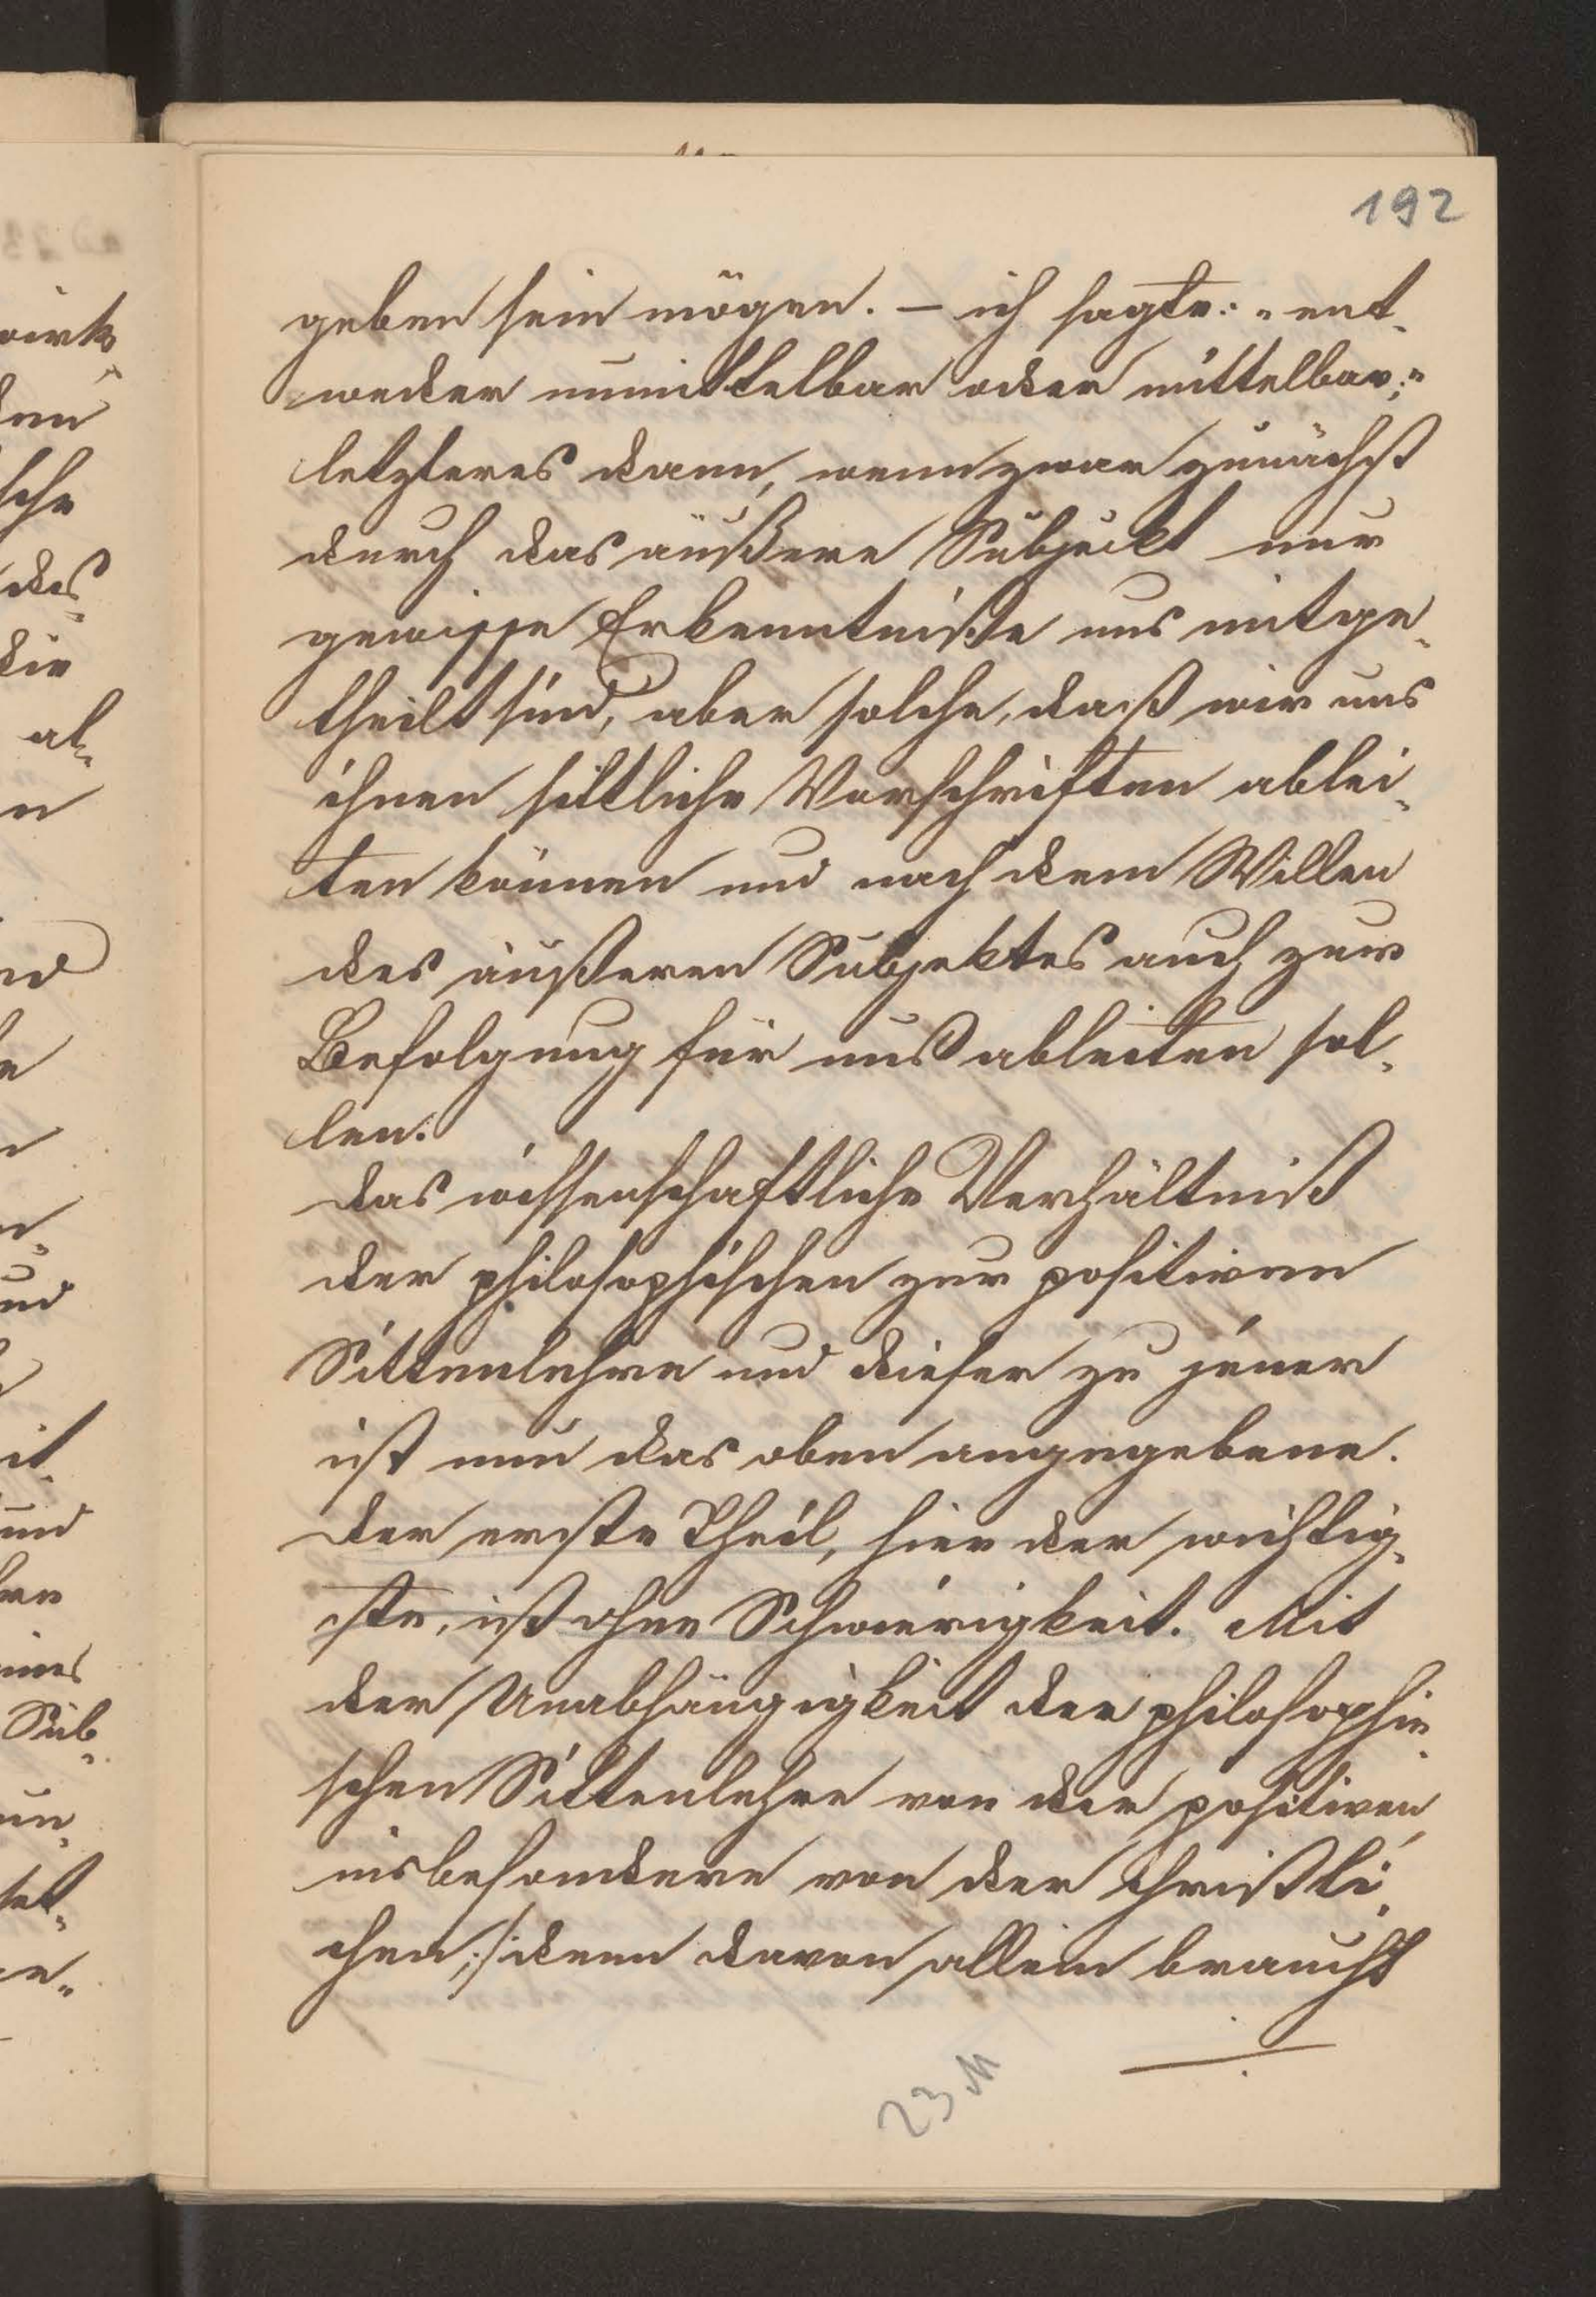 192
geben sein mögen. – ich sagte: „ent-
weder unmittelbar oder mittelbar;“
letzteres dann, wenn zwar zunächst
durch das äußere Subjeckt nur
gewisse Erkenntniße uns mitge-
theilt sind, aber solche, daß wir aus
ihnen sittliche Vorschriften ablei-
ten können und nach dem Willen
des äußeren Subjektes auch zur
Befolgung für uns ableiten sol-
len.
das wissenschaftliche Verhältniß
der philosophischen zur positiven
Sittenlehre und dieser zu jener
ist nun das oben angegebene.
der erste Theil, hier der wichtig-
ste, ist ohne Schwierigkeit. Mit
der Unabhängigkeit der philosophi-
schen Sittenlehre von der positiven,
insbesondere von der christli-
chen; /: denn davon allein braucht
23 M